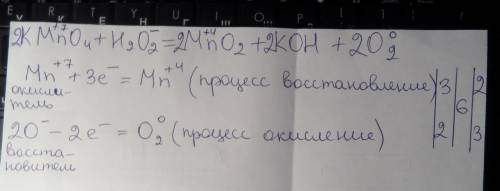 E Y R K T E Y U Г I Ш O Щ P
2KMn⁺⁷O₄ + H₂O₂⁻ = 2Mn⁺⁴O₂ + 2KOH + 2O₂⁰
Mn⁺⁷ + 3e⁻ = Mn⁺⁴ (процесс восстановление) | 3 | 6 | 2
окисли-
тель
2O⁻ - 2e⁻ = O₂⁰ (процесс окисление) | 2 | | 3
восста-
новитель